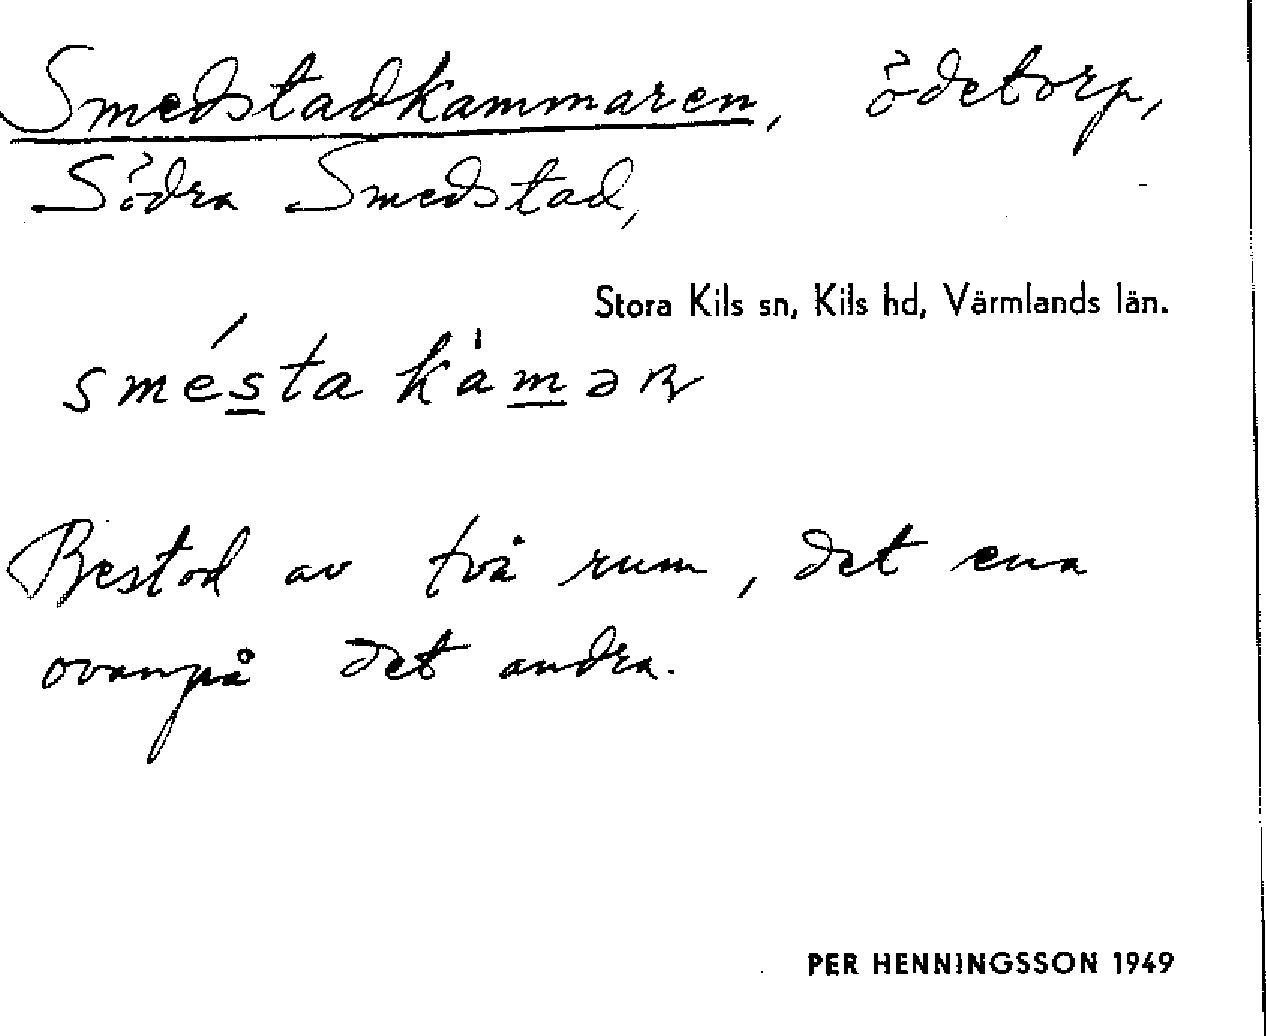 Smedstadkammaren, ödetorp,
Södra Smedstad,
Stora Kils sn, Kils hd, Värmlands län.
smésta kàmər
Bestod av två rum, det ena
ovanpå det andra.
PER HENNINGSSON 1949